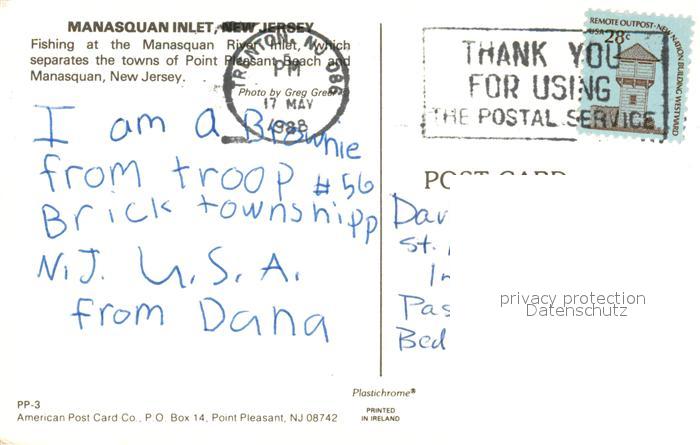 MANASQUAN INLET, NEW JERSEY
Fishing at the Manasquan River Inlet, which
separates the towns of Point Pleasant Beach and
Manasquan, New Jersey.
Photo by Greg
TRENTON, NJ 086
PM
17 MAY
1988
THANK YOU
FOR USING
THE POSTAL SERVICE
REMOTE OUTPOST · NEW NATION BUILDING WESTWARD
USA 28c
I am a Brownie
from troop #56
Brick townshipp
N.J. U.S.A.
from Dana
POST CARD
St.
privacy protection
Datenschutz
PP-3
American Post Card Co., P.O. Box 14, Point Pleasant, NJ 08742
Plastichrome®
PRINTED
IN IRELAND